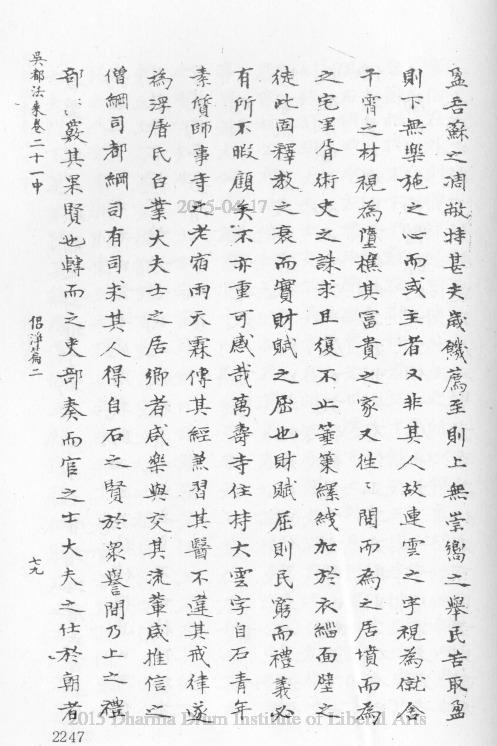 盈吾蘇之凋敝特甚夫歲饑薦至則上無崇嚮之舉民苦取盈
則下無樂施之心而或主者又非其人故連雲之宇視為僦舍
干霄之材視為墮樵其冨貴之家又徃〻閱而為之居墳而為
之宅里胥術史之誅求且復不止箠䇿縲絏加於衣緇面壁之
徒此固釋教之衰而實財賦之屈也財賦屈則民窮而禮義必
有所不暇顧矣不亦重可慼哉萬壽寺住持大雲字自石青年
素質師事寺之老宿雨天霖傳其經兼習其醫不違其戒律遂
為浮屠氏白業大夫士之居鄉者咸樂與交其流輩咸推信之
僧綱司都綱司有司求其人得自石之賢於眾譽間乃上之禮
部〻覈其果賢也轉而之吏部奏而官之士大夫之仕於朝者
吳都法乘卷二十一中
侶淨篇二
七九
2247
2015-04-17
2015 Dharma Drum Institute of Liberal Arts